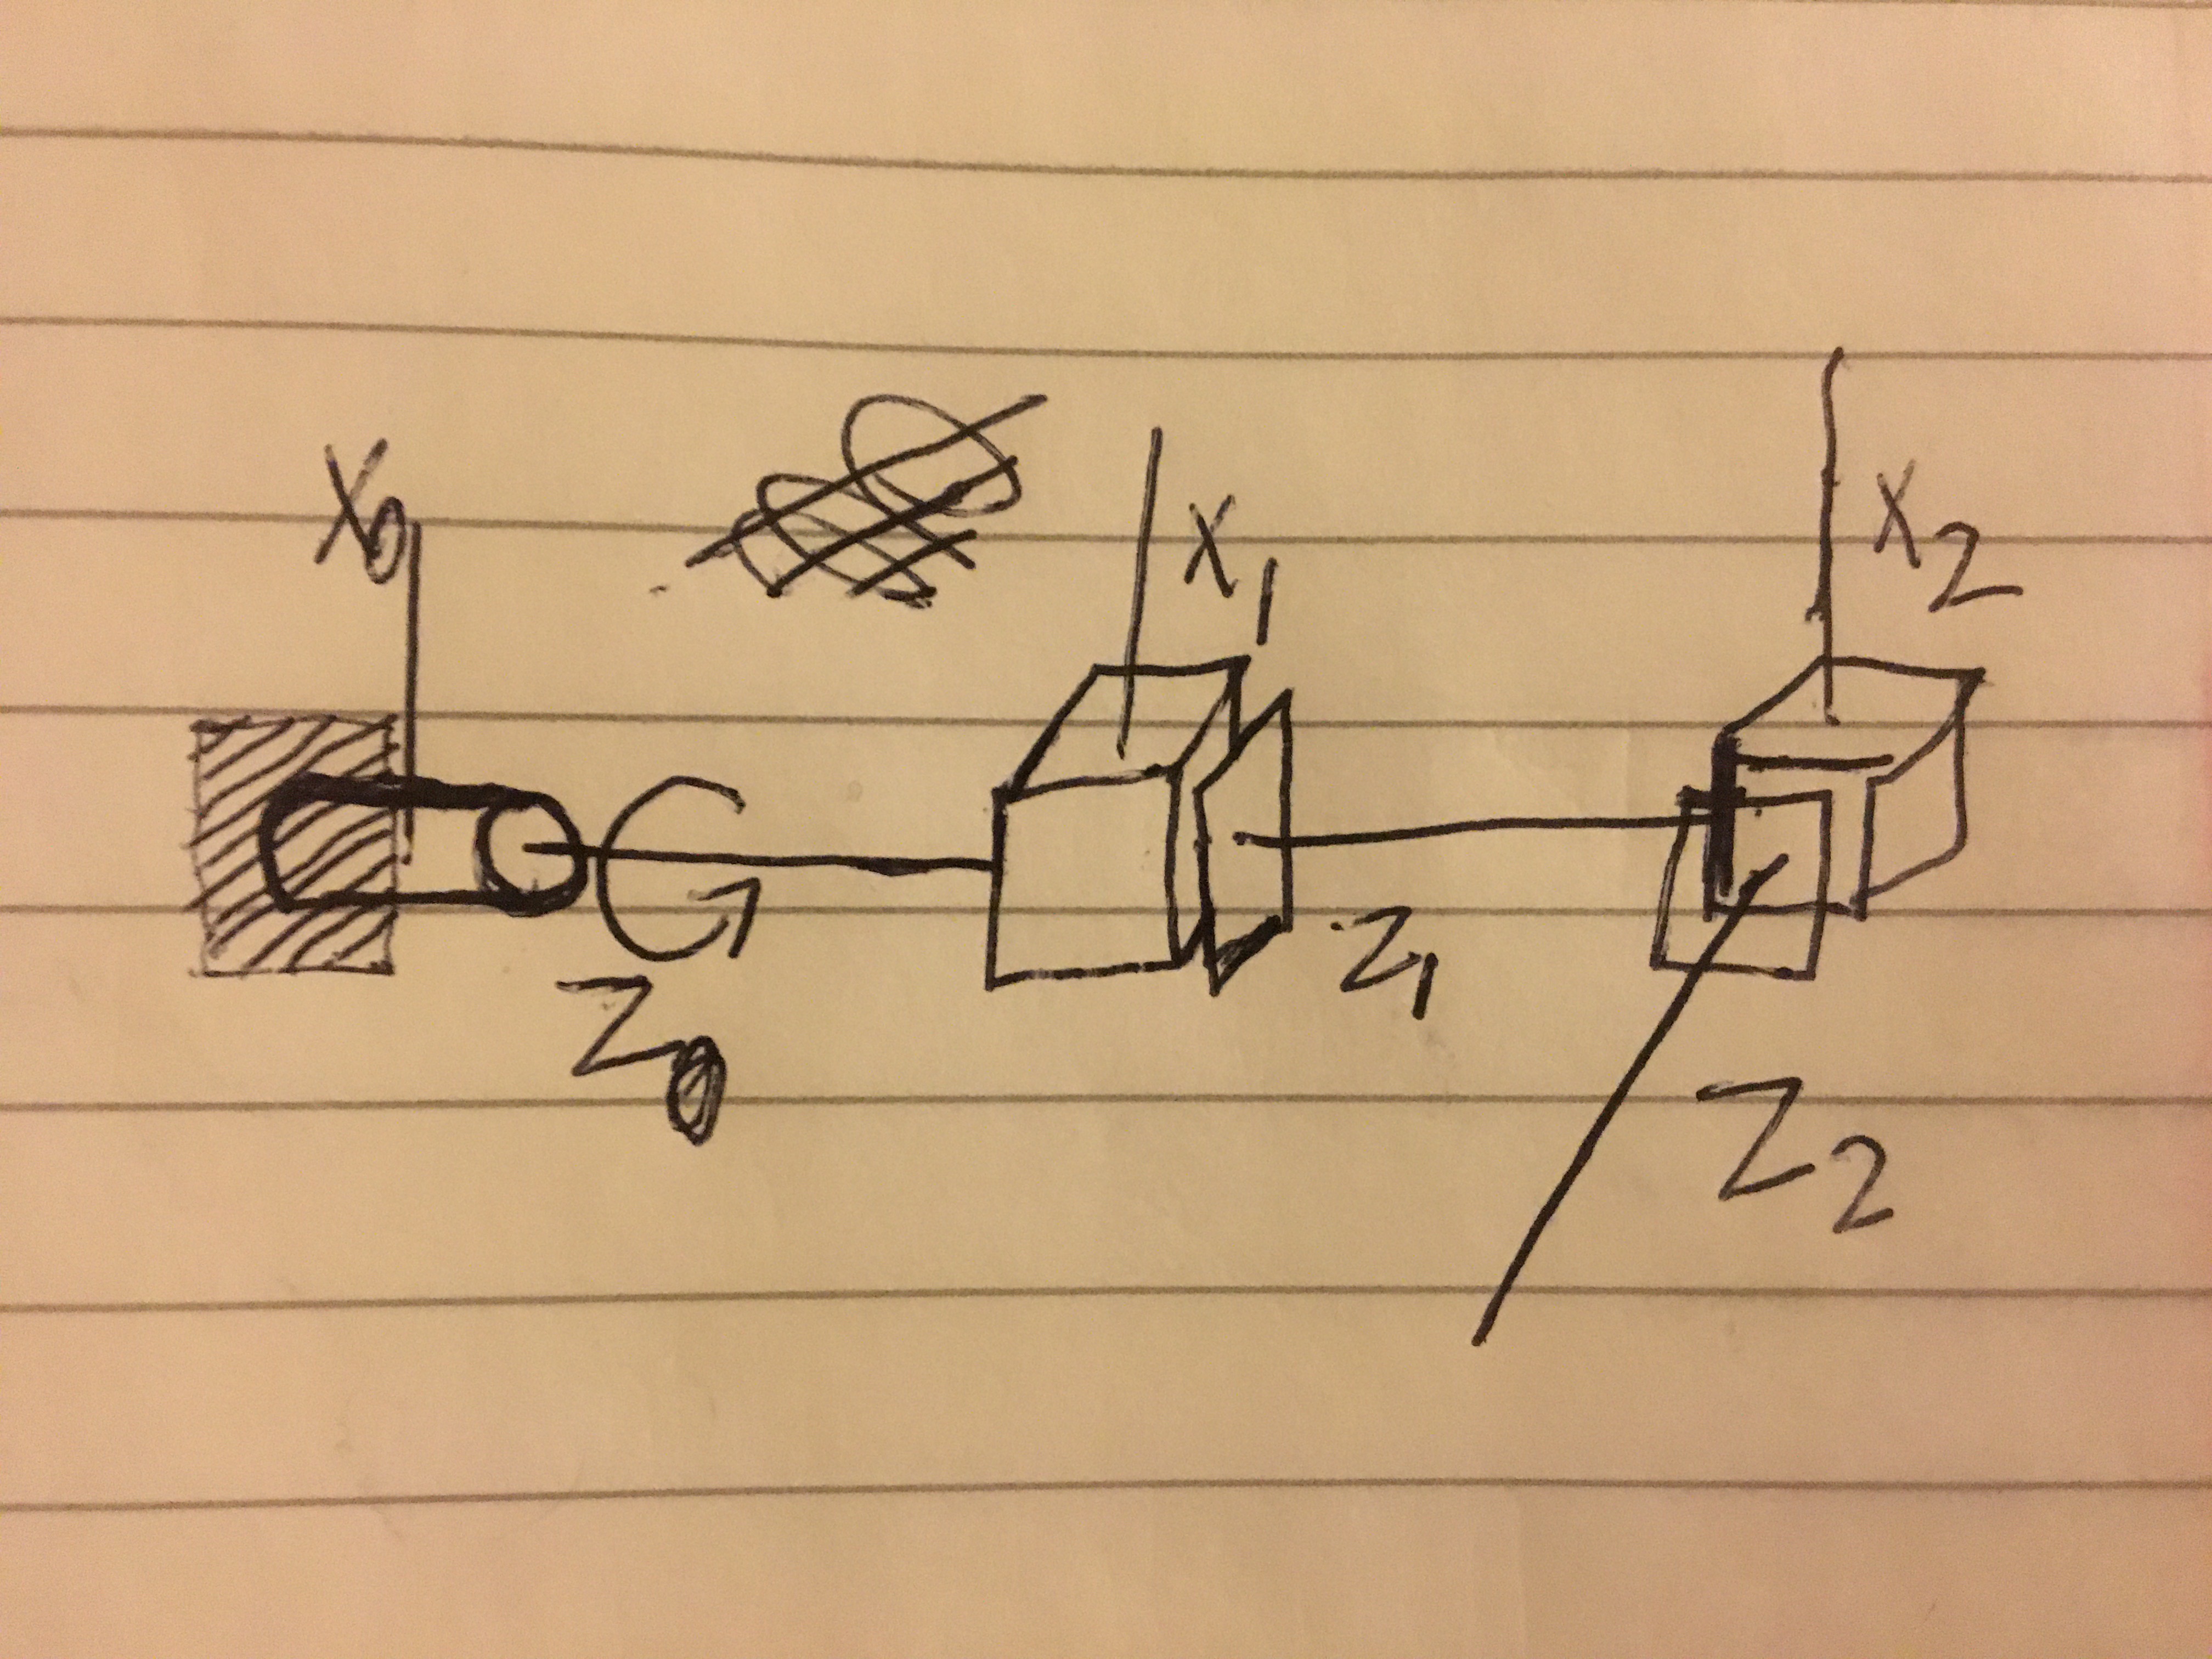 X0
X1
X2
Z0
Z1
Z2